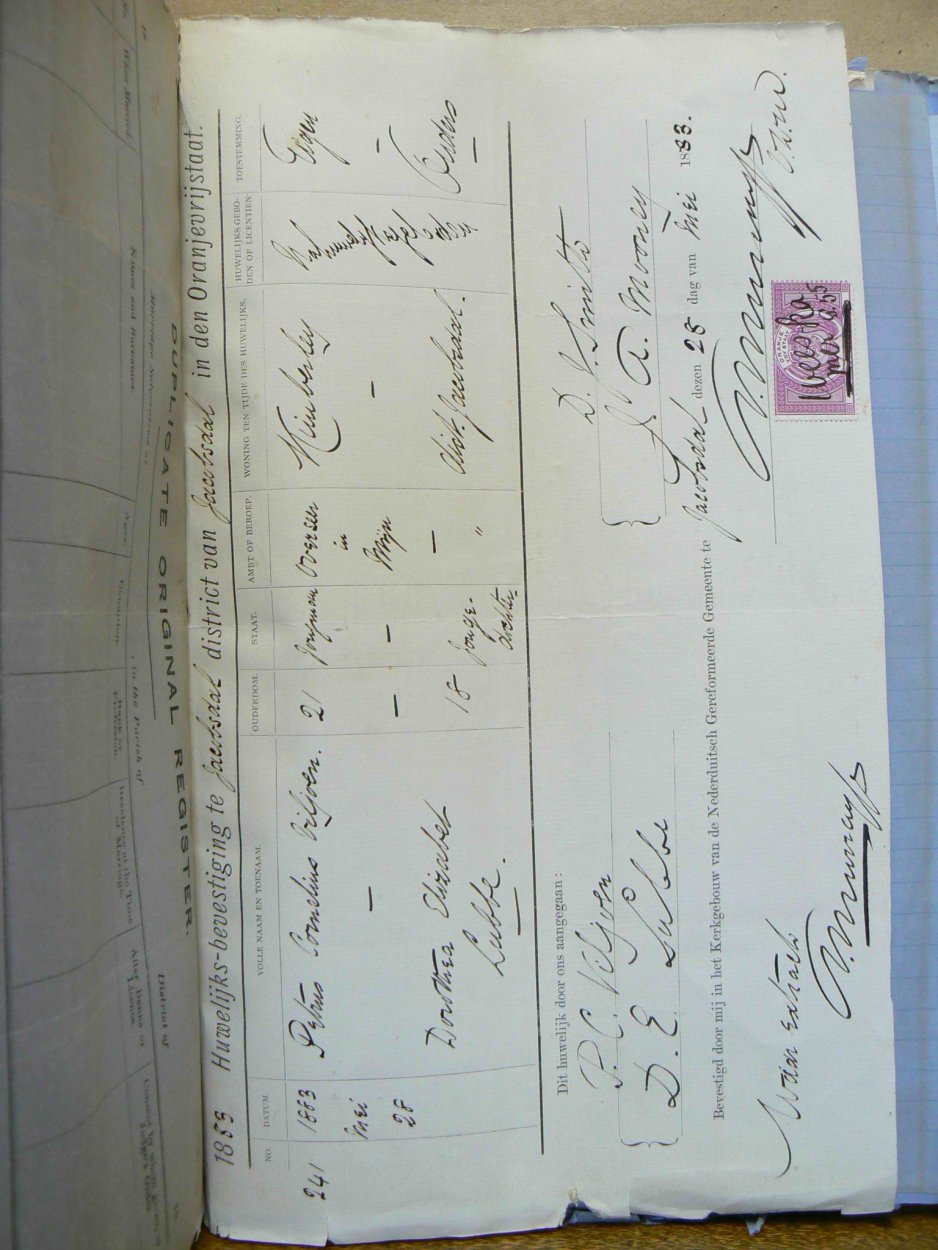 1883 Huwelijks-bevestiging te Jacobsdal district van Jacobsdal in den Oranjevrijstaat.
NO. DATUM. VOLLE NAAM EN TOENAAM. OUDERDOM. STAAT. AMBT OF BEROEP. WONING TEN TIJDE DES HUWELIJKS. HUWELIJKS-GEBODEN OF LICENTIEN TOESTEMMING.
241 1883 Petrus Cornelius Viljoen. 21 Jongman Overseer Kimberley Na Eigen
Mei — — — in — —
28 Mijn
Dorothea Elizabet 18 Jonge- — Dist. Jacobsdal. Ouders
Lubbe. dochter "
Dit huwelijk door ons aangegaan:
P. C. Viljoen D. J. Smits
D. E. Lubbe J A. Mooney
Bevestigd door mij in het Kerkgebouw van de Nederduitsch Gereformeerde Gemeente te Jacobsdal dezen 28 dag van Mei 1883.
Waar Extract
DUPLICATE ORIGINAL REGISTER.
Marriage Solemnized at
in the Parish of
District of
When Married.
Names and Surnames.
Ages.
Condition.
Rank or Profession.
Residence at the Time of Marriage.
After Banns or Licence.